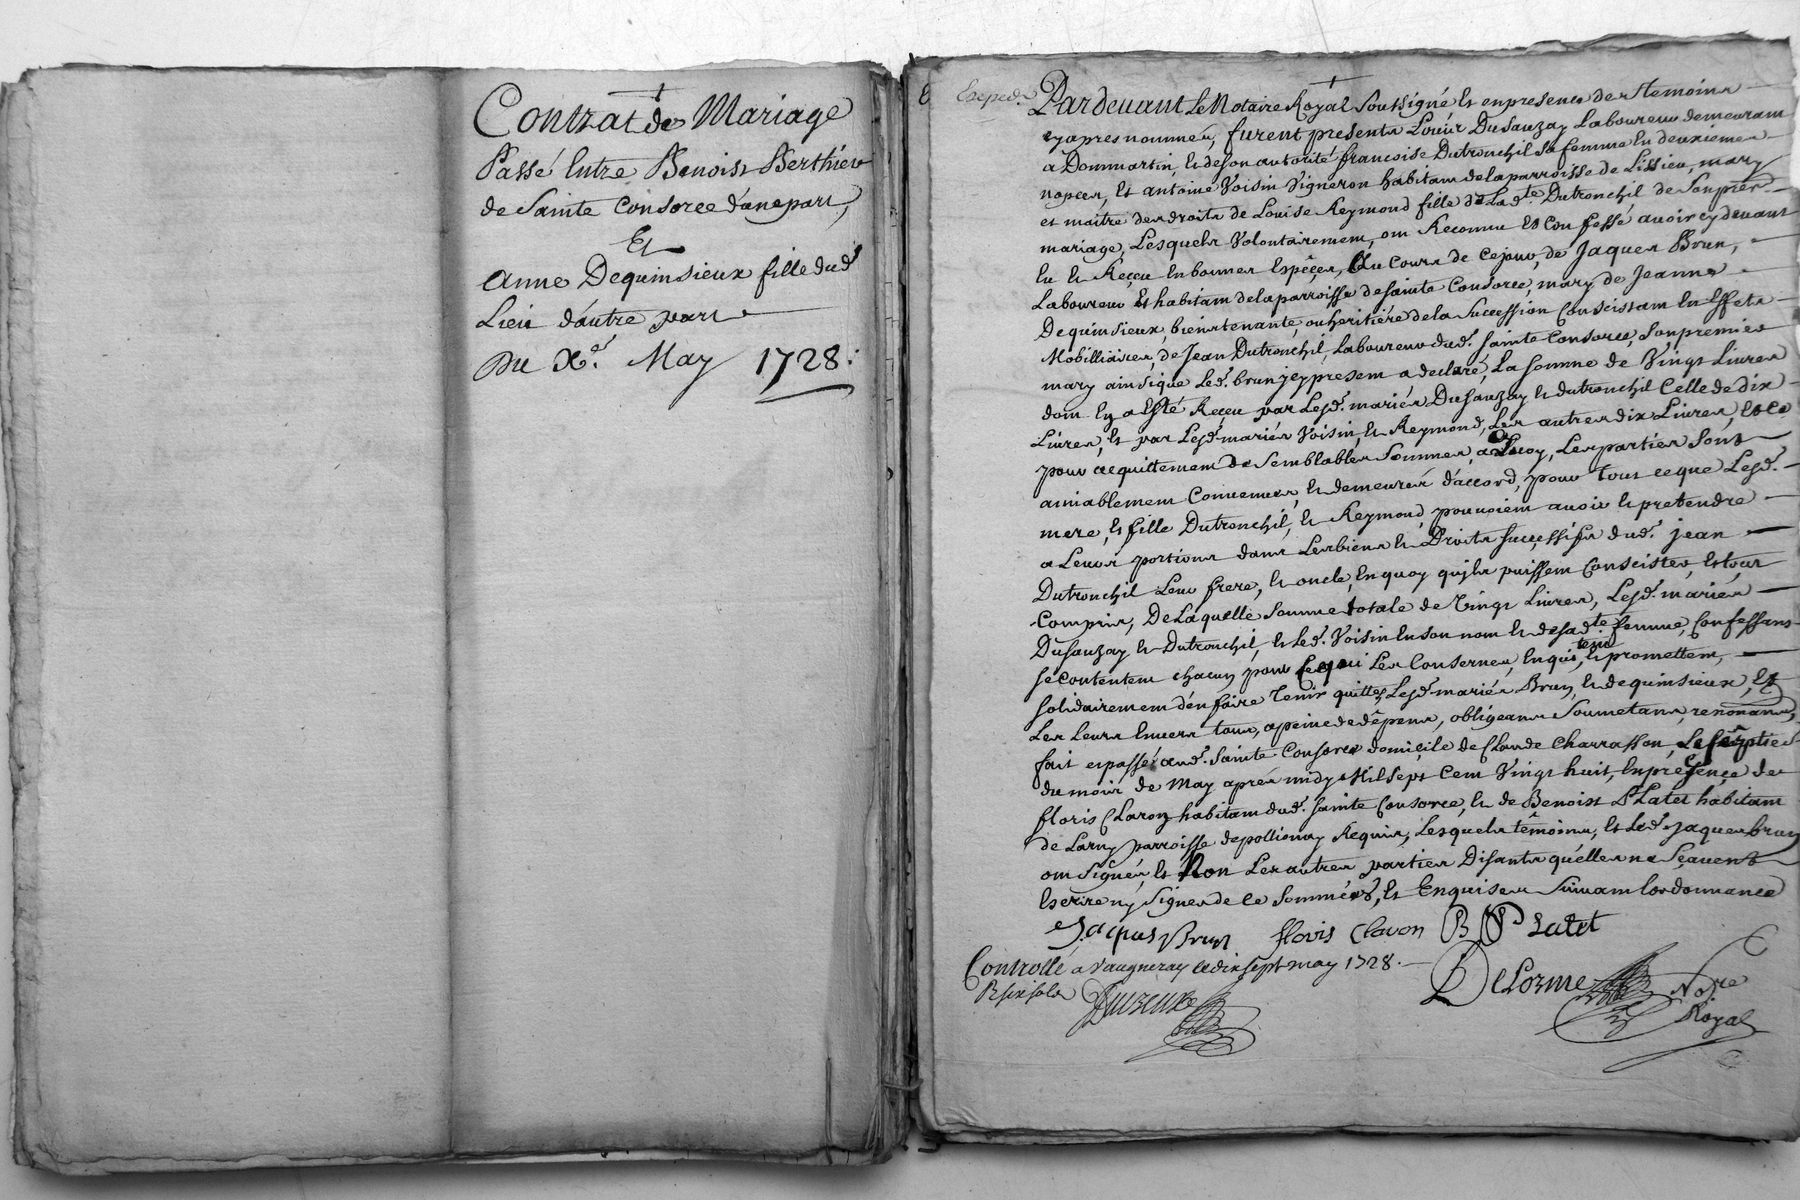 Contrat de Mariage
Passé Entre Benoist Berthieu
de Sainte Consorce d'une part,
Et
Anne Dequinsieux fille dud.
Lieu d'autre part
Du Xe. May 1728.
Exped.
Pardevant Le Notaire Royal Soussigné Et en presence des temoins
cy apres nommes, furent presents Dusauzay Laboureur demeurant
a Dommartin, Et de son autorité françoise Dutronchil sa femme En deuxiemes
nopces, Et antoine Voisin Vigneron habitant de la parroisse de Lissieu, mary
et maitre des droits de Louise Reymond fille de Lad.te Dutronchil de son prer.
mariage, Lesquels Volontairement, ont Reconnu Et Confessé avoir cy devant
Eu Et Reçeu En bonnes Espêçes, Au Cours de Ce jour, de Jaques Brun,
Laboureur Et habitant de la parroisse de sainte Consorce, mary de Jeanne
Dequinsieux, bientenante, ou heritiére de la Succession Conscistant En Effets
Mobilliaires, de Jean Dutronchil, Laboureur dud. sainte Consorce, son premier
mary ainsi que Led. brun jcy present a declaré, La somme de Vingt Livres
dont En a Esté Reçeu par Lesd. mariés Dusauzay Et dutronchil Celle de dix
Livres, Et par Lesd. mariés Voisin, Et Reymond, Les autres dix Livres, Et Ce
pour acquittement de semblables Sommes, a Quoy, Les parties sont
amiablement Convenues, Et demeurés d'accord, pour tout ce que Lesd.
mere, Et fille Dutronchil, Et Reymond, pouvoient avoir Et pretendre
a Leurs portions dans Les biens Et Droits Successifs dud. jean
Dutronchil Leur frere, Et oncle, En quoy qu'jls puissent Conscister, Et tout
Compris, De Laquelle Somme totale de Vingt Livres, Lesd. mariés
Dusauzay Et Dutronchil, Et Led. Voisin En son nom Et de sad.te femme, Confessans
se contentent chacun pour Ce qui Les Conserne, En quittent Et promettent,
solidairement d'en faire tenir quittes Lesd. mariés Brun, Et dequinsieux, Et
Les Leurs Envers tous, a peine de dêpens, obligeans Soumetans, renonçans,
fait et passé aud. Sainte Consorce domicile de Claude Charrasson, Le septie.
du mois de May aprés midy Mil sept Cent Vingt huit, En présençe de
floris Claron habitant dud. sainte Consorce, Et de Benoist Platet habitant
de Larny parroisse de pollionay Requis, Lesquels têmoins, Et Led. Jaques brun
ont Signés, Et Non Les autres parties Disants qu'elles ne Sçavent
Escrire ny Signer de Ce Sommées, Et Enquises Suivant Lordonnance
Jaques Brun floris Claron B Platet
Controllé a Vaugneray le dix sept may 1728.
R six sols
DeLorme Nore
Royal